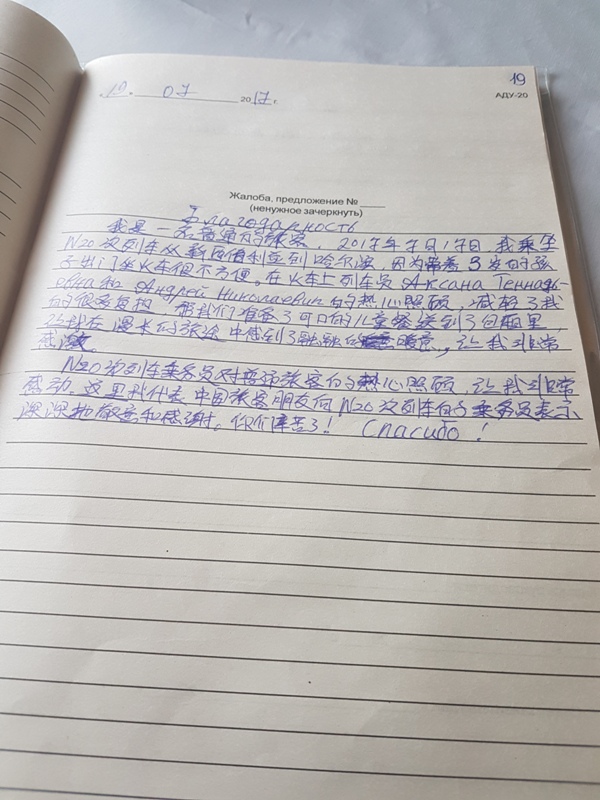 19
АДУ-20
10. 07 2017 г.
Жалоба, предложение №
(ненужное зачеркнуть)
Благодарность
我是一名普通的旅客，2017年7月17日，我乘坐
N20次列车从新西伯利亚到哈尔滨，因为带着3岁的孩
子出门坐火车很不方便。在火车上列车员 Аксана Геннадь
евна和 Андрей Николаевич 的热心照顾，减轻了我
的很多负担，帮我们准备了可口的儿童餐送到了包厢里，
让我在漫长的旅途中感到了融融的暖意，让我非常
感激
N20次列车乘务员对普通旅客的热心照顾，让我非常
感动。这里我代表中国旅客朋友向N20次列车的乘务员表示
深深地敬意和感谢。你们辛苦了！ Спасибо !